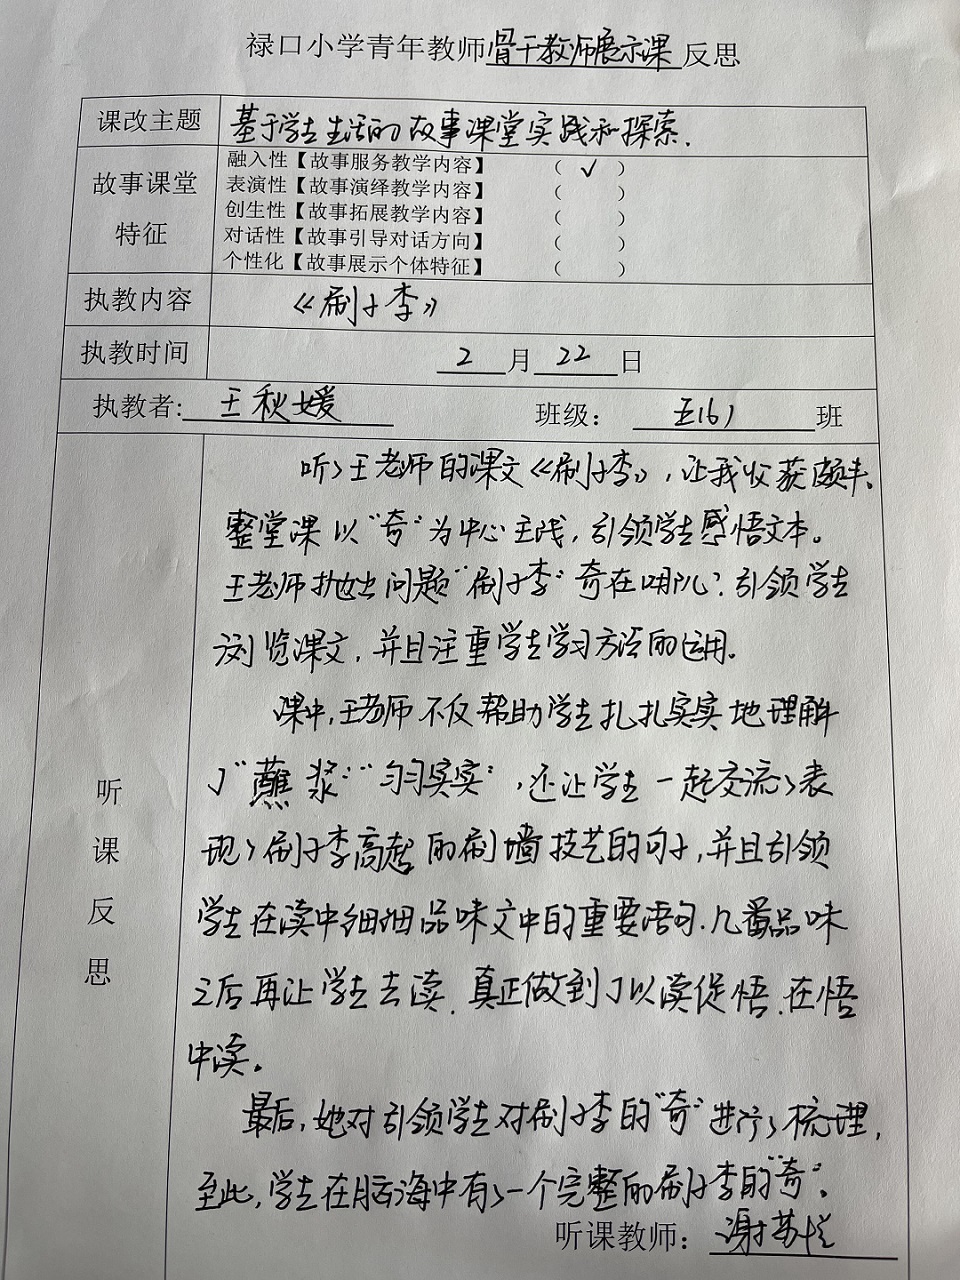 禄口小学青年教师骨干教师展示课反思
课改主题 基于学生生活的故事课堂实践和探索.
故事课堂特征
融入性【故事服务教学内容】 ( ✓ )
表演性【故事演绎教学内容】 ( )
创生性【故事拓展教学内容】 ( )
对话性【故事引导对话方向】 ( )
个性化【故事展示个体特征】 ( )
执教内容 《刷子李》
执教时间 2月22日
执教者: 王秋媛 班级: 五(6) 班
听课反思
听了王老师的课文《刷子李》,让我收获颇丰、
整堂课以“奇”为中心主线,引领学生感悟文本。
王老师抛出问题“刷子李”奇在哪儿?引领学生
浏览课文,并且注重学生学习方法的运用。
课中,王老师不仅帮助学生扎扎实实地理解
了“蘸浆”“匀匀实实”,还让学生一起交流了表
现了刷子李高超的刷墙技艺的句子,并且引领
学生在读中细细品味文中的重要语句.几番品味
之后再让学生去读.真正做到了以读促悟.在悟
中读。
最后,她对引领学生对刷子李的“奇”进行了梳理,
至此,学生在脑海中有了一个完整的刷子李的“奇”。
听课教师: 谢